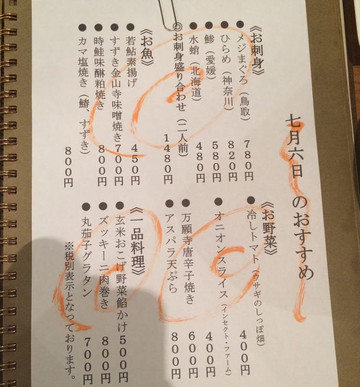 七月六日 のおすすめ
《お刺身》
●メジまぐろ(鳥取) 780円
●ひらめ(神奈川) 820円
●鯵(愛媛) 580円
●水蛸(北海道) 480円
◎お刺身盛り合わせ(二人前) 1480円
《お魚》
●若鮎素揚げ 450円
●すずき金山寺味噌焼き 700円
●時鮭味醂粕焼き 800円
●カマ塩焼き(鰆、すずき) 800円
《お野菜》
●冷しトマト(ウサギのしっぽ畑) 400円
●オニオンスライス(インセクト・ファーム) 400円
●万願寺唐辛子焼き 600円
●アスパラ天ぷら 800円
《一品料理》
●玄米おこげ野菜餡かけ 500円
●ズッキーニ肉巻き 800円
●丸茄子グラタン 700円
※税別表示となっております。